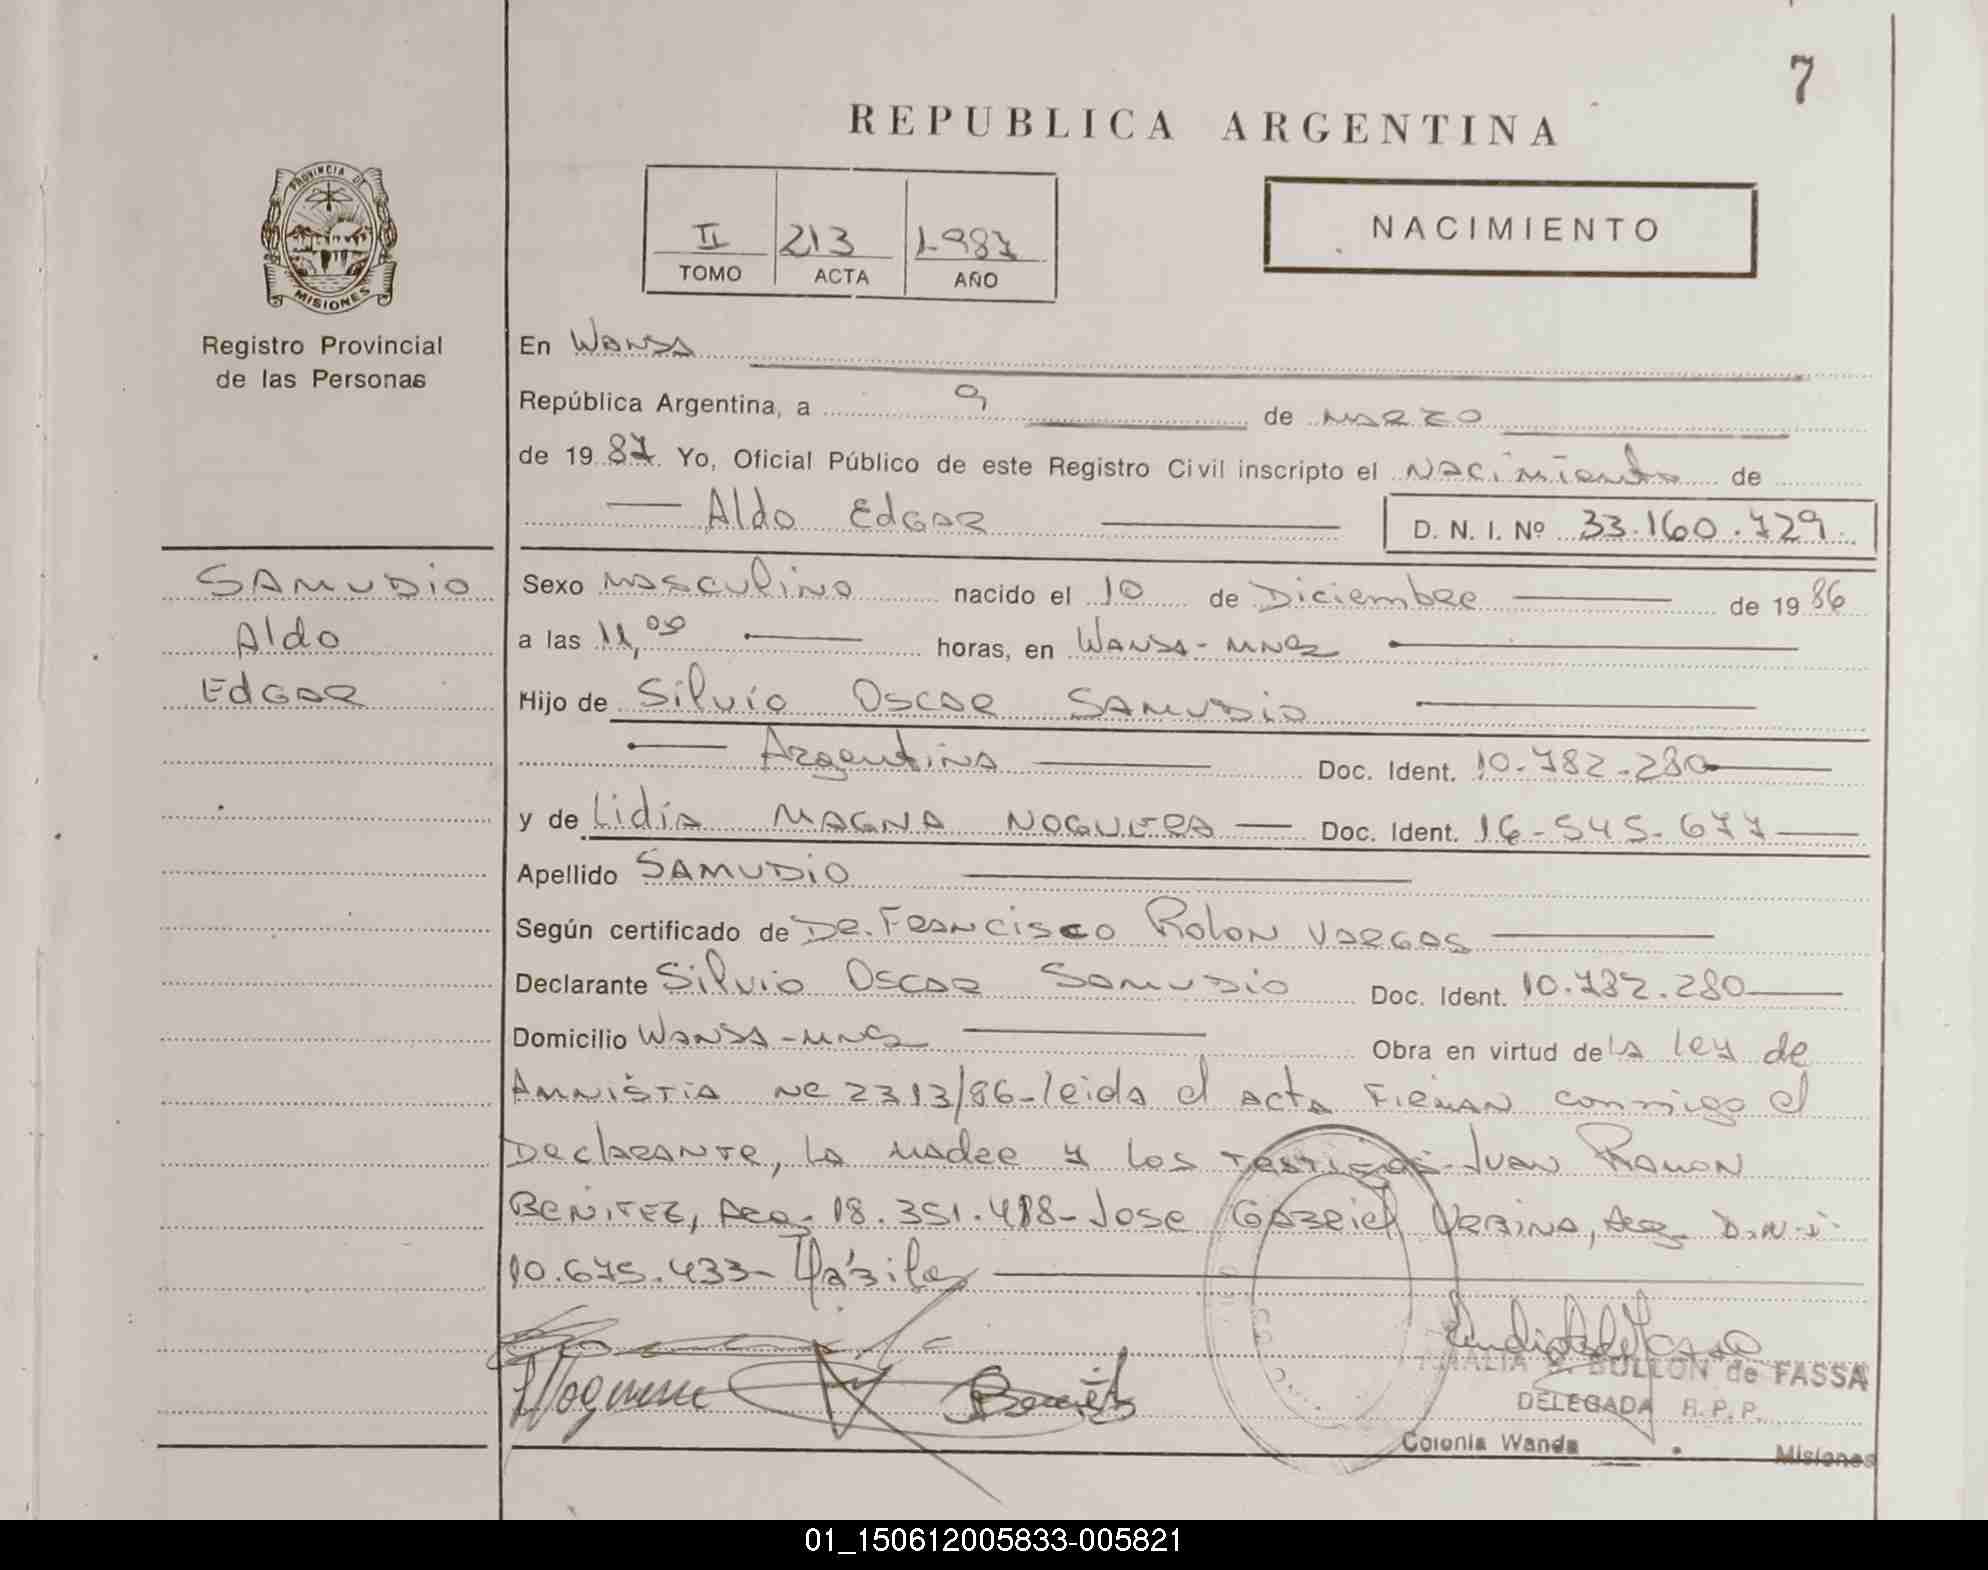 7
REPUBLICA ARGENTINA
PROVINCIA DE
MISIONES
Registro Provincial
de las Personas
II 213 1987
TOMO ACTA AÑO
NACIMIENTO
En Wanda
República Argentina, a 9 de marzo
de 1987. Yo, Oficial Público de este Registro Civil inscripto el nacimiento de
Aldo Edgar D. N. I. Nº 33.160.729.
SAMUDIO
Aldo
Edgar
Sexo masculino nacido el 10 de Diciembre de 1986
a las 11,00 horas, en Wanda-Mnes
Hijo de Silvio Oscar SAMUDIO
Argentina Doc. Ident. 10.782.280
y de Lidia MAGNA NOGUERA Doc. Ident. 16.545.677
Apellido SAMUDIO
Según certificado de Dr. Francisco Rolon Vargas
Declarante Silvio Oscar Samudio Doc. Ident. 10.782.280
Domicilio Wanda-Mnes Obra en virtud de la ley de
Amnistia Nº 2313/86-leida el acta firman conmigo el
Declarante, la madre y los testigos-Juan Ramon
BENITEZ, Arg. 18.351.418-Jose Gabriel Urbina, Arg. D.N.I
10.675.433-
Noguera
AMALIA BULLON de FASSA
DELEGADA R.P.P.
Colonia Wanda Misiones
01_150612005833-005821